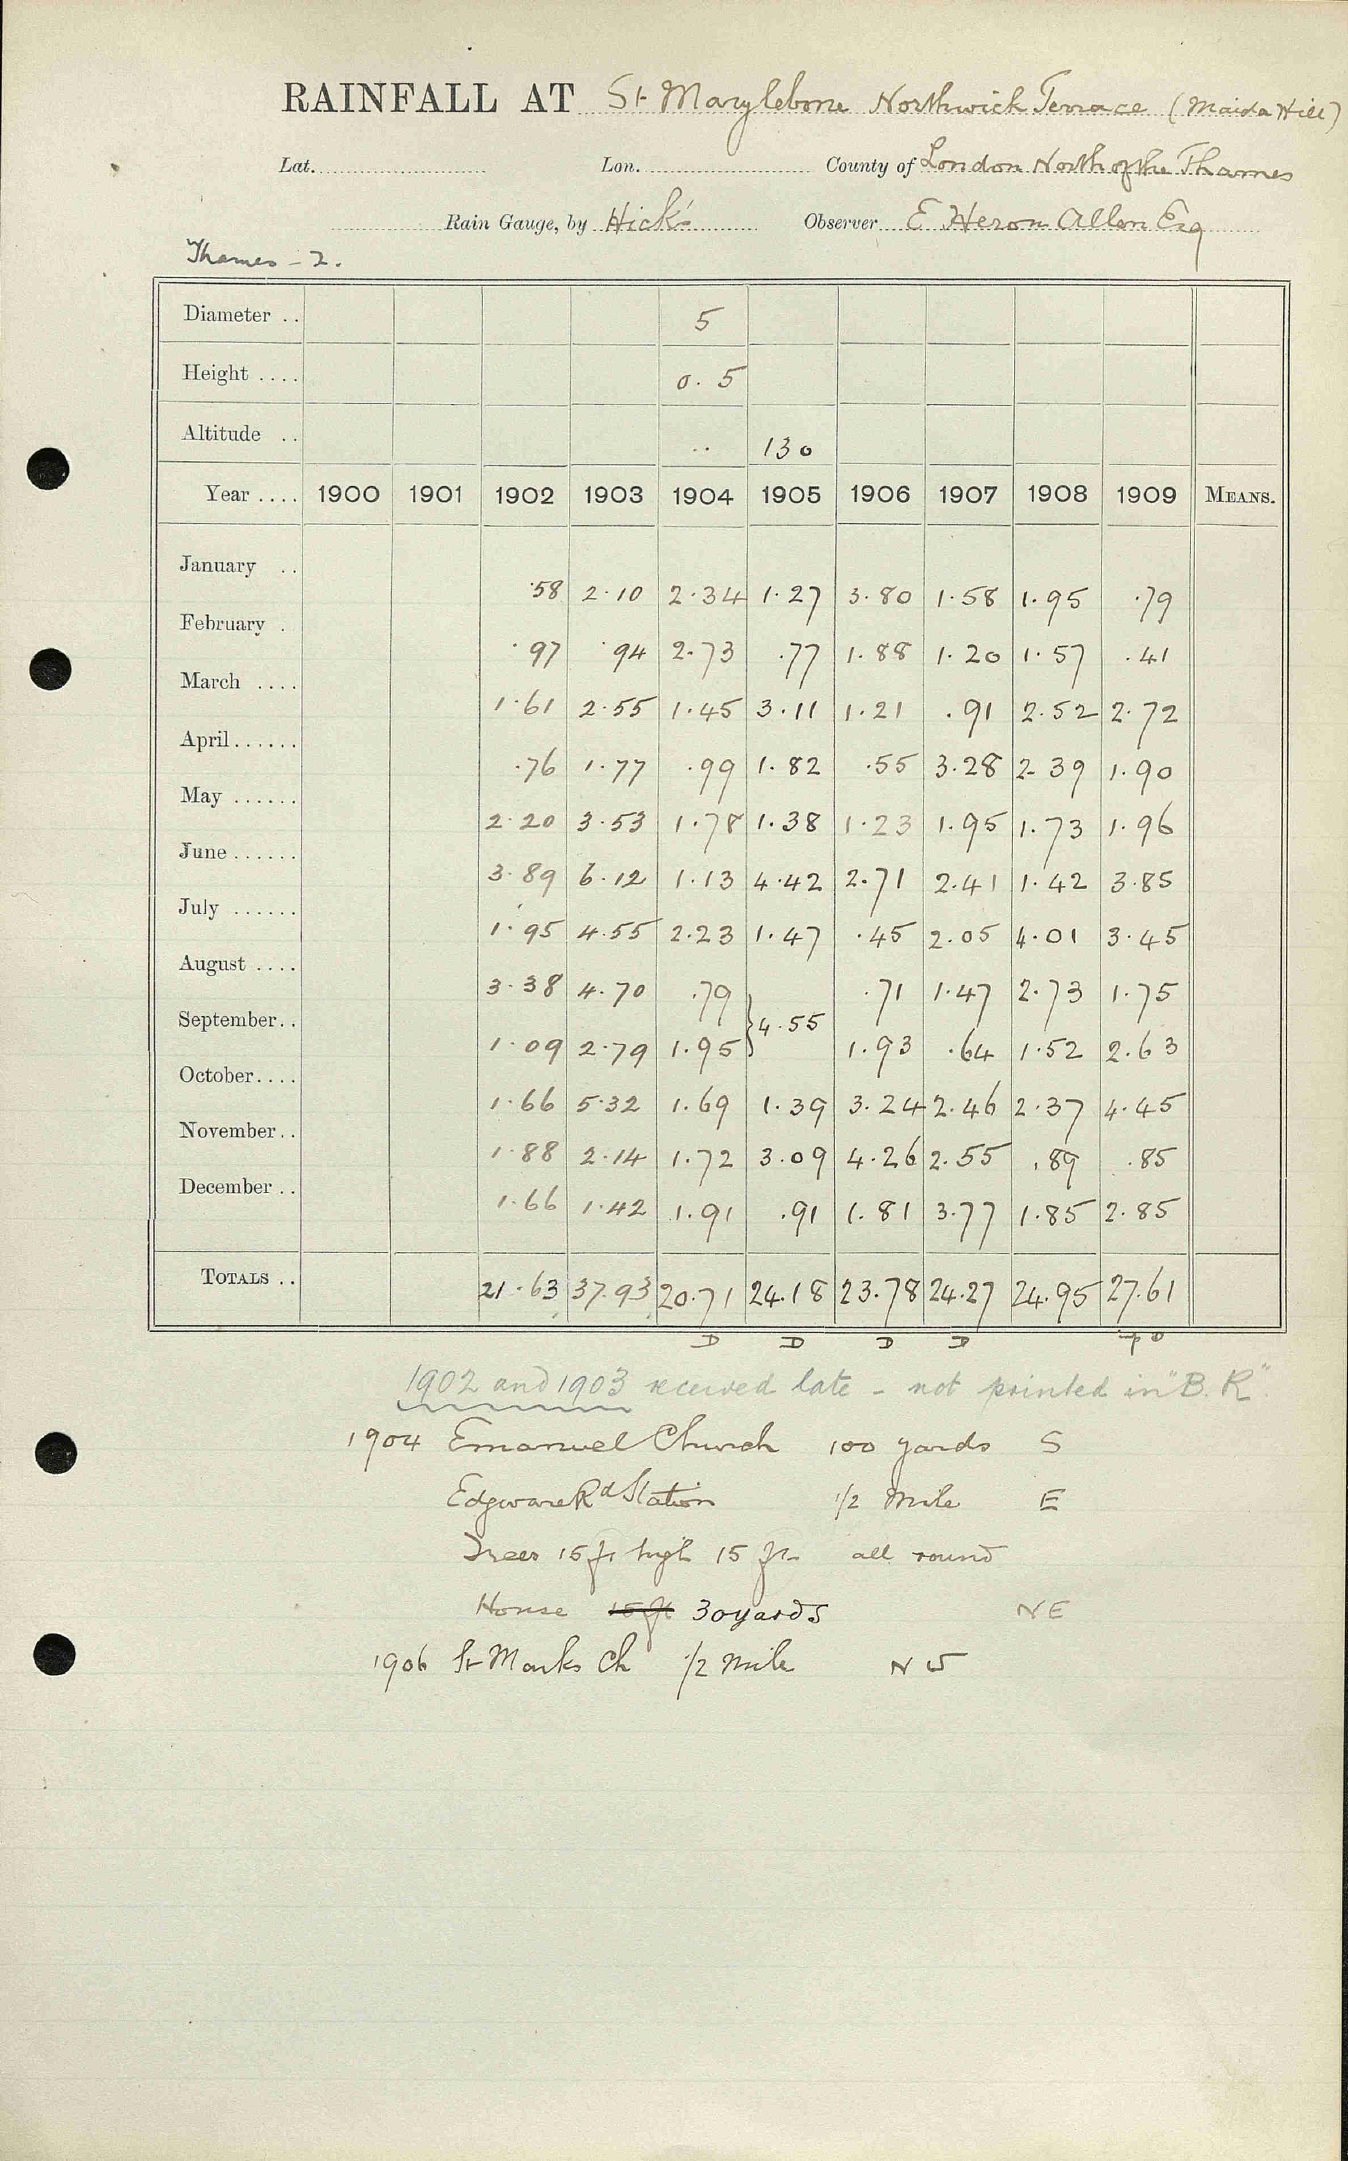 RAINFALL AT St Marylebone Northwick Terrace (Maida Hill)
Lat. Lon. County of London North of the Thames
Rain Gauge, by Hick's Observer E Heron Allen Esq
Thames - 2.
Diameter .. 5
Height .... 0.5
Altitude .. .. 130
Year .... 1900 1901 1902 1903 1904 1905 1906 1907 1908 1909 MEANS.
January .. .58 2.10 2.34 1.27 3.80 1.58 1.95 .79
February . .97 .94 2.73 .77 1.88 1.20 1.57 .41
March .... 1.61 2.55 1.45 3.11 1.21 .91 2.52 2.72
April ...... .76 1.77 .99 1.82 .55 3.28 2.39 1.90
May ...... 2.20 3.53 1.78 1.38 1.23 1.95 1.73 1.96
June ...... 3.89 6.12 1.13 4.42 2.71 2.41 1.42 3.85
July ...... 1.95 4.55 2.23 1.47 .45 2.05 4.01 3.45
August .... 3.38 4.70 .79 } 4.55 .71 1.47 2.73 1.75
September .. 1.09 2.79 1.95 1.93 .64 1.52 2.63
October .... 1.66 5.32 1.69 1.39 3.24 2.46 2.37 4.45
November .. 1.88 2.14 1.72 3.09 4.26 2.55 .89 .85
December .. 1.66 1.42 1.91 .91 1.81 3.77 1.85 2.85
TOTALS .. 21.63 37.93 20.71 24.18 23.78 24.27 24.95 27.61
D D D D
1902 and 1903 received late - not printed in "B.R".
1904 Emanuel Church 100 yards S
Edgware Rd Station 1/2 Mile E
Trees 15 ft high 15 ft all round
House 15 ft 30 yards NE
1906 St Marks Ch 1/2 Mile NW